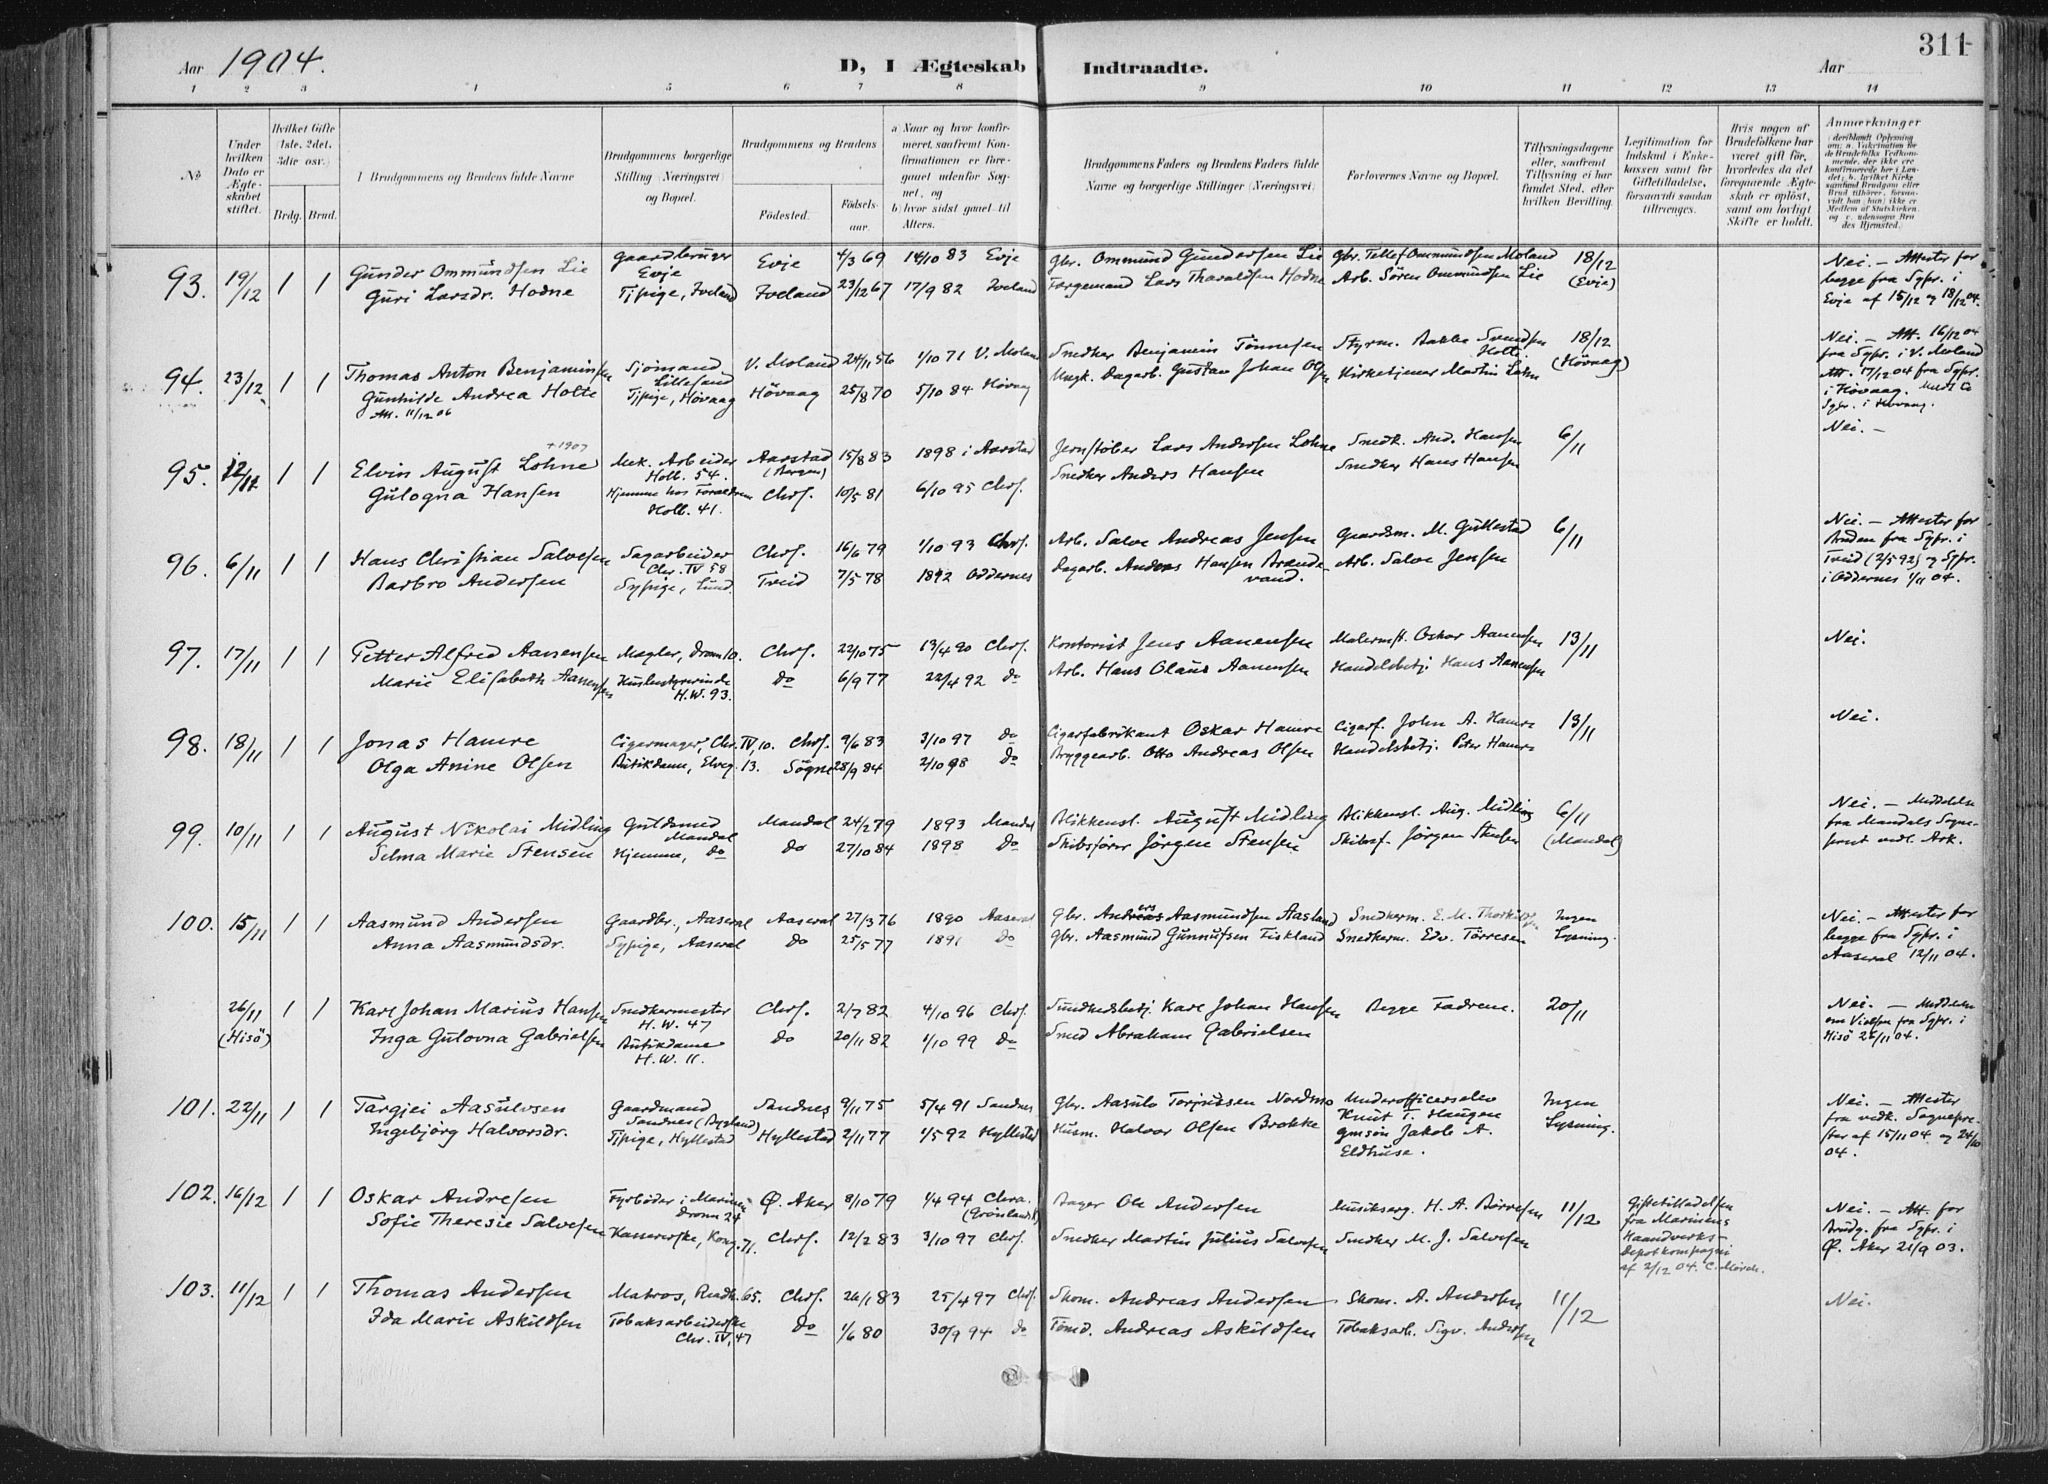 Aar 1904. D, I Ægteskab Indtraadte. Aar 311
1 2 3 4 5 6 7 8 9 10 11 12 13 14
№
Under hvilken Dato er Ægteskabet stiftet.
Hvilket Gifte (1ste, 2det, 3die osv.)
Brdg. Brud.
1 Brudgommens og Brudens fulde Navne
Brudgommens borgerlige Stilling (Næringsvei) og Bopæl.
Brudgommens og Brudens
Fødested. Fødselsaar.
a) Naar og hvor konfirmeret, saafremt Konfirmationen er foregaaet udenfor Sognet, og
b) hvor sidst gaaet til Alters.
Brudgommens Faders og Brudens Faders fulde Navne og borgerlige Stillinger (Næringsvei).
Forlovernes Navne og Bopæl.
Tillysningsdagene eller, saafremt Tillysning ei har fundet Sted, efter hvilken Bevilling.
Legitimation for Indskud i Enkekassen samt for Giftetilladelse, forsaavidt saadan tiltrænges.
Hvis nogen af Brudefolkene har været gift før, hvorledes da det foregaaende Ægteskab er opløst, samt om lovligt Skifte er holdt.
Anmærkninger
93. 19/12 1 1 Gunder Ommundsen Lie Gaardbruger Evje Evje 4/3 69 14/10 83 Evje Gbr. Ommund Gundersen Lie Gbr. Tellef Ommundsen Moland 18/12 (Evje) Nei. – Attester for
Guri Larsdr. Hodne Tjpige, Iveland Iveland 23/12 67 17/9 82 Iveland Færgemand Lars Tharaldsen Hodne Arb. Sören Ommundsen Lie begge fra Sgpr. i
Evje af 15/12 og 18/12 04.
94. 23/12 1 1 Thomas Anton Benjaminsen Sjömand Lillesand V. Moland 24/11 56 1/10 71 V. Moland Snedker Benjamin Tönnesen Styrm. Bakke Svendsen Holte 18/12 (Hövaag) Nei. – Att. 16/12 04
Gunhilde Andrea Holte Tjpige, Hövaag Hövaag 25/8 70 5/10 84 Hövaag Ungk. Dagarb. Gustav Johan Olsen Kirketjener Martin fra Sgpr. i V. Moland
Att. 11/12 06 Att. 17/12 04 fra Sgpr.
i Hövaag.
Sgpr. i Hövaag.
95. 12/11 1 1 Elvin August Lohne +1907 Mek. Arbeider Holb. 54. Aarstad (Bergen) 15/8 83 1898 i Aarstad Jernstöber Lars Andersen Lohne Snedk. And. Hansen 6/11 Nei. –
Gulogna Hansen Hjemme hos Forældrene Holb. 41. Chrs. 10/5 81 6/10 95 Chrs. Snedker Anders Hansen Snedker Hans Hansen
96. 6/11 1 1 Hans Christian Salvesen Sagarbeider Chr. IV 58 Chrs. 16/6 79 1/10 93 Chrs. Arb. Salve Andreas Jensen Gaardsm. M. Gullestad 6/11 Nei. – Attester for
Barbro Andersen Sypige, Lund. Tveid 7/5 78 1892 Oddernes Dagarb. Anders Hansen Brandevand. Arb. Salve Jensen Bruden fra Sgpr. i
Tveid (2/5 92) og Sgpr.
i Oddernes 1/11 04.
97. 17/11 1 1 Petter Alfred Aanensen Mægler, Dronn 10. Chrs. 22/10 75 13/4 90 Chrs. Kontorist Jens Aanensen Malermst. Oskar Aanensen 13/11 Nei.
Marie Elisabeth Aanensen Husbestyrerinde H.W. 93. do 6/9 77 22/4 92 do Arb. Hans Olaus Aanensen Handelsbetj. Hans Aanensen
98. 18/11 1 1 Jonas Hamre Cigarmager, Chr. IV, 10. Chrs. 9/6 83 3/10 97 do Cigarfabrikant Oskar Hamre Cigarf. John A. Hamre 13/11 Nei.
Olga Anine Olsen Butikdame, Elveg. 13. Sögne 28/9 84 2/10 98 do Bryggearb. Otto Andreas Olsen Handelsbetj. Peter Hamre
99. 10/11 1 1 August Nikolai Midling Guldsmed Mandal Mandal 24/2 79 1893 Mandal Blikkensl. August Midling Blikkensl. Aug. Midling 6/11 (Mandal) Nei. – Meddelse
Selma Marie Stensen Hjemme, do do 27/10 84 1898 do Skibsförer Jörgen Stensen Skibsf. Jörgen Stensen fra Mandals Sogneprest vedl. Ark.
100. 15/11 1 1 Aasmund Andersen Gaardbr., Aaseral Aaseral 27/3 76 1890 Aaseral Gbr. Anders Aasmundsen Aasland Snedkerm. E. M. Thorkildsen Ingen Nei. – Attester for
Anna Aasmundsdr. Sypige, Aaseral do 25/5 77 1891 do Gbr. Aasmund Gunnufsen Fiskland Snedkerm. Edv. Törresen Lysning. begge fra Sgpr. i
Aaseral 12/11 04.
26/11 (Hisö) 1 1 Karl Johan Marius Hansen Snedkermester H.W. 47 Chrs. 2/7 82 4/10 96 Chrs. Sundhedsbetj. Karl Johan Hansen Begge Fædrene. 20/11 Nei. – Meddelse
Inga Gulovna Gabrielsen Butikdame H.W. 11. do 20/11 82 1/10 99 do Smed Abraham Gabrielsen om Vielsen fra Sgpr. i
Hisö 26/11 04.
101. 22/11 1 1 Targjei Aasulvsen Gaardmand Sandnes (Bygland) Sandnes 9/11 75 5/4 91 Sandnes Gbr. Aasulv Torjussen Nordmo Underofficerselev Knut T. Haugen Ingen Nei. – Attester
Ingebjörg Halvorsdr. Tjpige, Hyllestad Hyllestad 2/11 77 1/5 92 Hyllestad Husm. Halvor Olsen Brokke gmsön Jakob A. Eldhuse. Lysning. fra vedk. Sogneprester af 15/11 04 og 24/10 04.
102. 16/12 1 1 Oskar Andresen Fyrböder i Marinen Dronn 24 Ø. Aker 8/10 79 1/4 94 Chra. (Grönland) Bager Ole Andersen Musikserg. H. A. Börresen 11/12 Giftetilladelsen fra Marinens Haandverks-Depotkompagni af 2/12 04. Nei. – Att. for
Sofie Theresie Salvesen Kassererske, Kong. 71. Chrs. 12/2 83 3/10 97 Chrs. Snedker Martin Julius Salvesen Snedker M. J. Salvesen Brudg. fra Sgpr. i
Ø. Aker 21/9 03.
103. 11/12 1 1 Thomas Andersen Matros, Raadh. 65. Chrs. 26/1 83 25/4 97 Chrs. Skom. Andreas Andersen Skom. A. Andersen 11/12 Nei.
Ida Marie Askildsen Tobaksarbeiderske Chr. IV, 47 do 1/6 80 30/9 94 do Tömd. Andreas Askildsen Tobaksarb. Sigv. Andersen